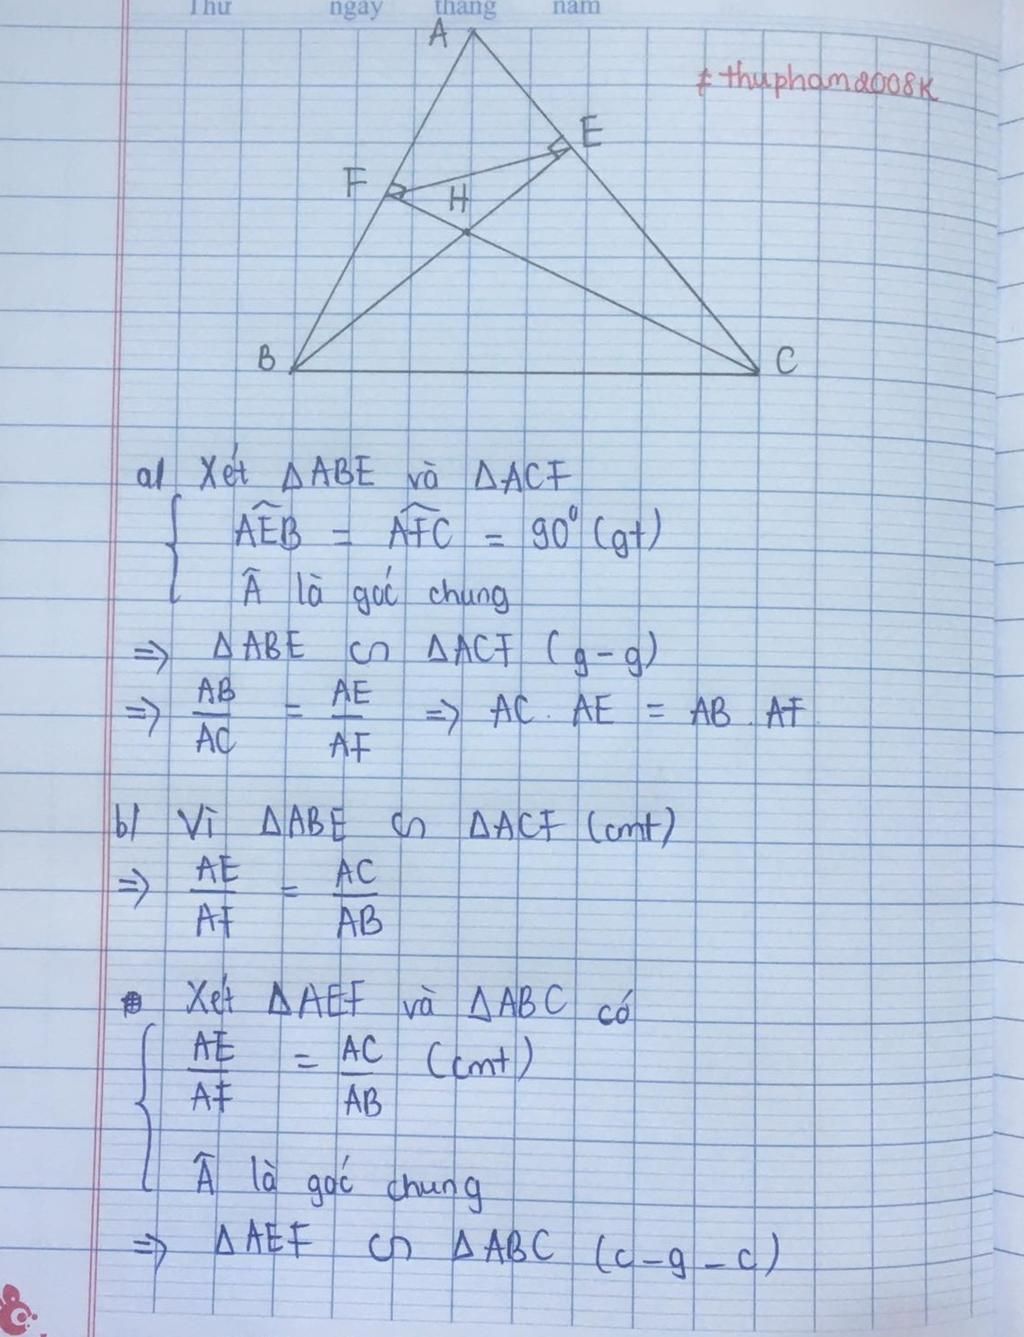 Thứ ngày tháng năm
A
# thupham2008K
E
F
H
B
C
a) Xét ΔABE và ΔACF
AÊB = AF̂C = 90° (gt)
Â là góc chung
=> ΔABE ∽ ΔACF (g-g)
=> AB/AC = AE/AF => AC . AE = AB . AF
b) Vì ΔABE ∽ ΔACF (cmt)
=> AE/AF = AC/AB
Xét ΔAEF và ΔABC có
AE/AF = AC/AB (cmt)
Â là góc chung
=> ΔAEF ∽ ΔABC (c-g-c)